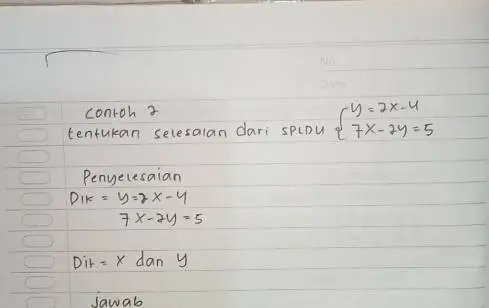 contoh 2
tentukan selesaian dari SPLDU { y = 2x - 4
7x - 2y = 5
Penyelesaian
Dik = y = 2x - 4
7x - 2y = 5
Dit = x dan y
Jawab